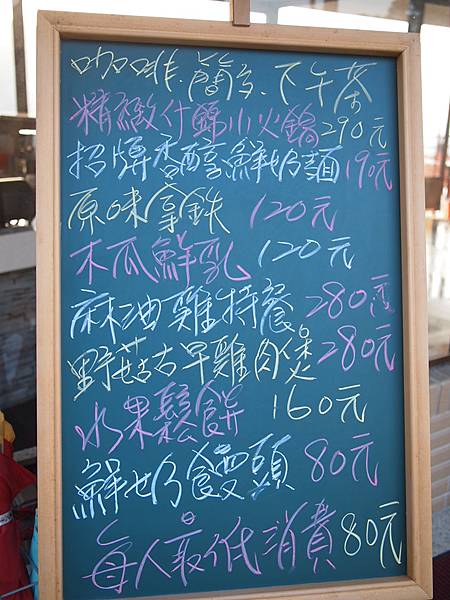 咖啡.簡餐.下午茶
精緻什錦小火鍋290元
招牌香醇鮮奶麵190元
原味拿鐵 120元
木瓜鮮乳 120元
麻油雞特餐280元
野菇古早雞肉煲280元
水果鬆餅 160元
鮮奶饅頭 80元
每人最低消費80元